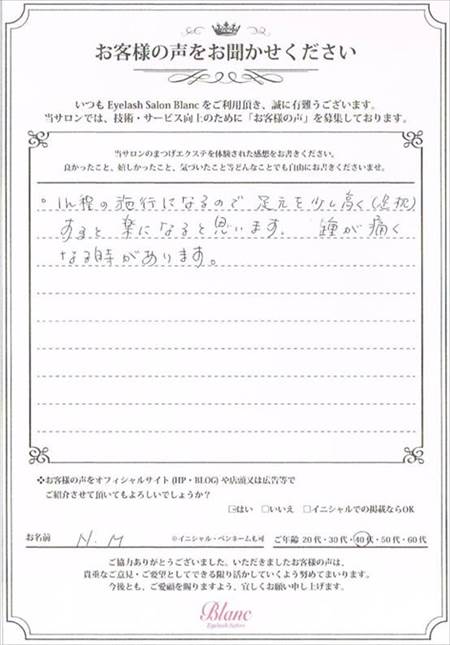 お客様の声をお聞かせください
いつも Eyelash Salon Blanc をご利用頂き、誠に有難うございます。
当サロンでは、技術・サービス向上のために「お客様の声」を募集しております。
当サロンのまつげエクステを体験された感想をお書きください。
良かったこと、嬉しかったこと、気づいたこと等どんなことでも自由にお書きくださいませ。
。1h程の施行になるので 足元を少し高く(足枕)
すると楽になると思います. 踵が痛く
なる時があります。
❖お客様の声をオフィシャルサイト (HP・BLOG) や店頭又は広告等で
ご紹介させて頂いてもよろしいでしょうか?
☑はい □いいえ □イニシャルでの掲載ならOK
お名前 N.M ※イニシャル・ペンネームも可 ご年齢 20代・30代・40代・50代・60代
ご協力ありがとうございました。いただきましたお客様の声は、
貴重なご意見・ご要望としてできる限り活かしていくよう努めてまいります。
今後とも、ご愛顧を賜りますよう、宜しくお願い申し上げます。
Blanc
Eyelash Salon